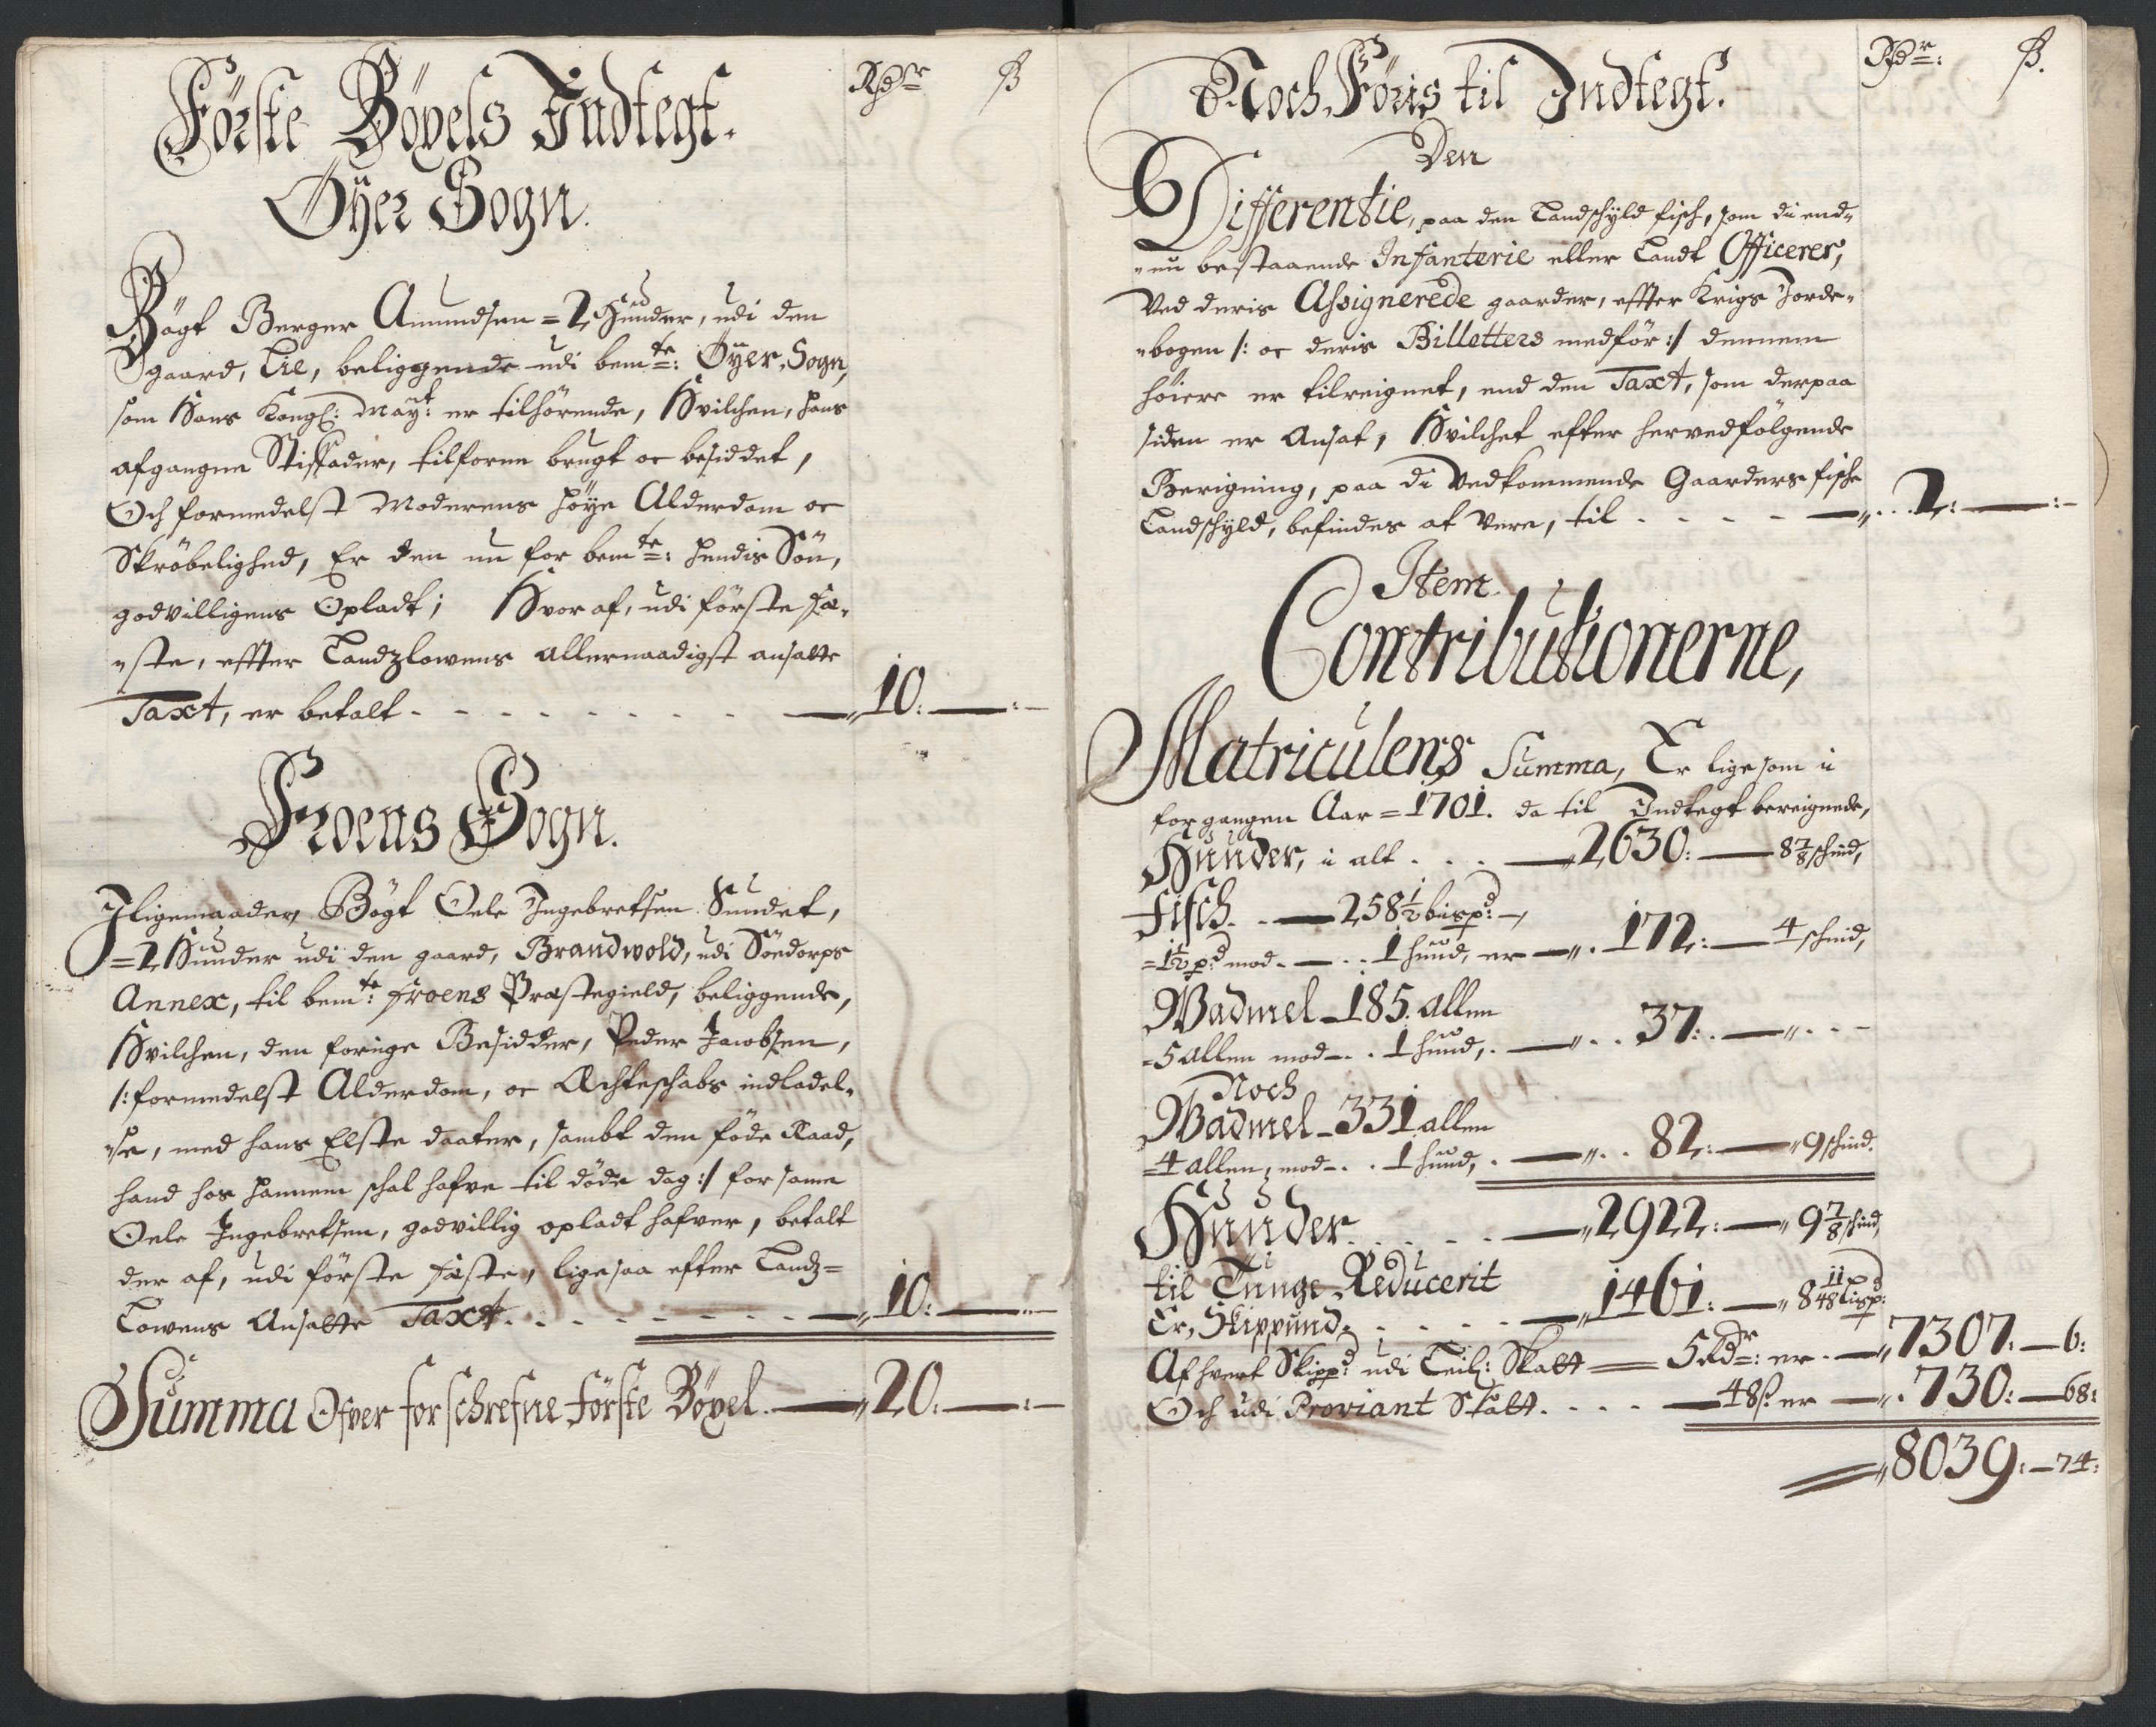 Rhdr ß
Förste Böxels Indtegt.
Öÿer Sogn.
Bögt Berger Amundsen = 2 Hunder, udi den
gaard, Lie, beliggende udi bemte: Öyer Sogn,
som Hans Kongl: Mayt: er tilhörende, Hvilchen, hans
afgangne Stiffader, tilforne brugt oc besiddet,
Och formedelst Moderens höye Alderdom oc
Skröbelighed, Er den nu for bemte: hendis Sön,
godvilligens Opladt; Hvoraf, udi förste fæ-
ste, effter Landzlowens allernaadigst ansatte
Taxt, er betalt - - - - 10: — : —
Froens Sogn.
Iligemaader, Bögt Oele Ingebretsen Sundet,
= 2 Hunder udi den gaard, Brandwold, udi Södorps
Annex, til bemte: Froens Præstegield, beliggende,
Hvilchen, den forige Besidder, Peder Jacobsen,
/: formedelst Alderdom, oc Ægteschabs indladel-
se, med hans Elste daater, sambt den föde Raad,
hand hos hannem schal hafve til döde dag :/ for same
Oele Ingebretsen, godvillig opladt hafver, betalt
der af, udi förste fæste, ligesaa efter Landz=
Lowens Ansatte Taxt. - - - - 10: —
Summa Ofver forschrefne förste Böxel. — 20. — : —
Rdr: ß.
Noch Föris til Indtegt.
Den
Differentie, paa den Landschyld fisch, som di end-
nu bestaaende Infanterie eller Landt Officerer,
Ved deris Assignerede gaarder, effter Krigs Jorde-
bogen /: oc deris Billetters medför :/ dennem
höiere er tilreignet, end den Taxt, som derpaa
siden er Ansat, Hvilchet efter hervedfölgende
Berigning, paa di Vedkommende Gaarders fische
Landschyld, befindes at Vere, til - - - - 2: — : —
Item
Contributionerne,
Matriculens Summa, Er ligesom i
forgangen Aar = 1701. da til Indtegt bereignede,
Hunder, i alt . . . — 2630: — 8 7/8 schind,
Fisch. . — 258 1/2 bispd: —,
= 1 1/2 pd mod — . . 1 hund, er — . 172: — 4 schind,
Wadmel — 185. allen
= 5 allen mod — . . 1 hund, . — . . 37: . — . . —
Noch
Wadmel — 331 allen
= 4 allen, mod — . . 1 hund, . — . . 82: — 9 schind.
Hunder . . . . . — 2922: — 9 7/8 schind,
til Tunge Reducerit
Er, Skippund . . . . . — 1461: — 8 11/48 Lispd:
Af hvert Skippd: udi Leil: Skatt — 5 Rdr: er . — 7307: — 6:
Och udi Proviant Skatt . - - - — 48 ß er — . 730: — 68:
8039: — 74: